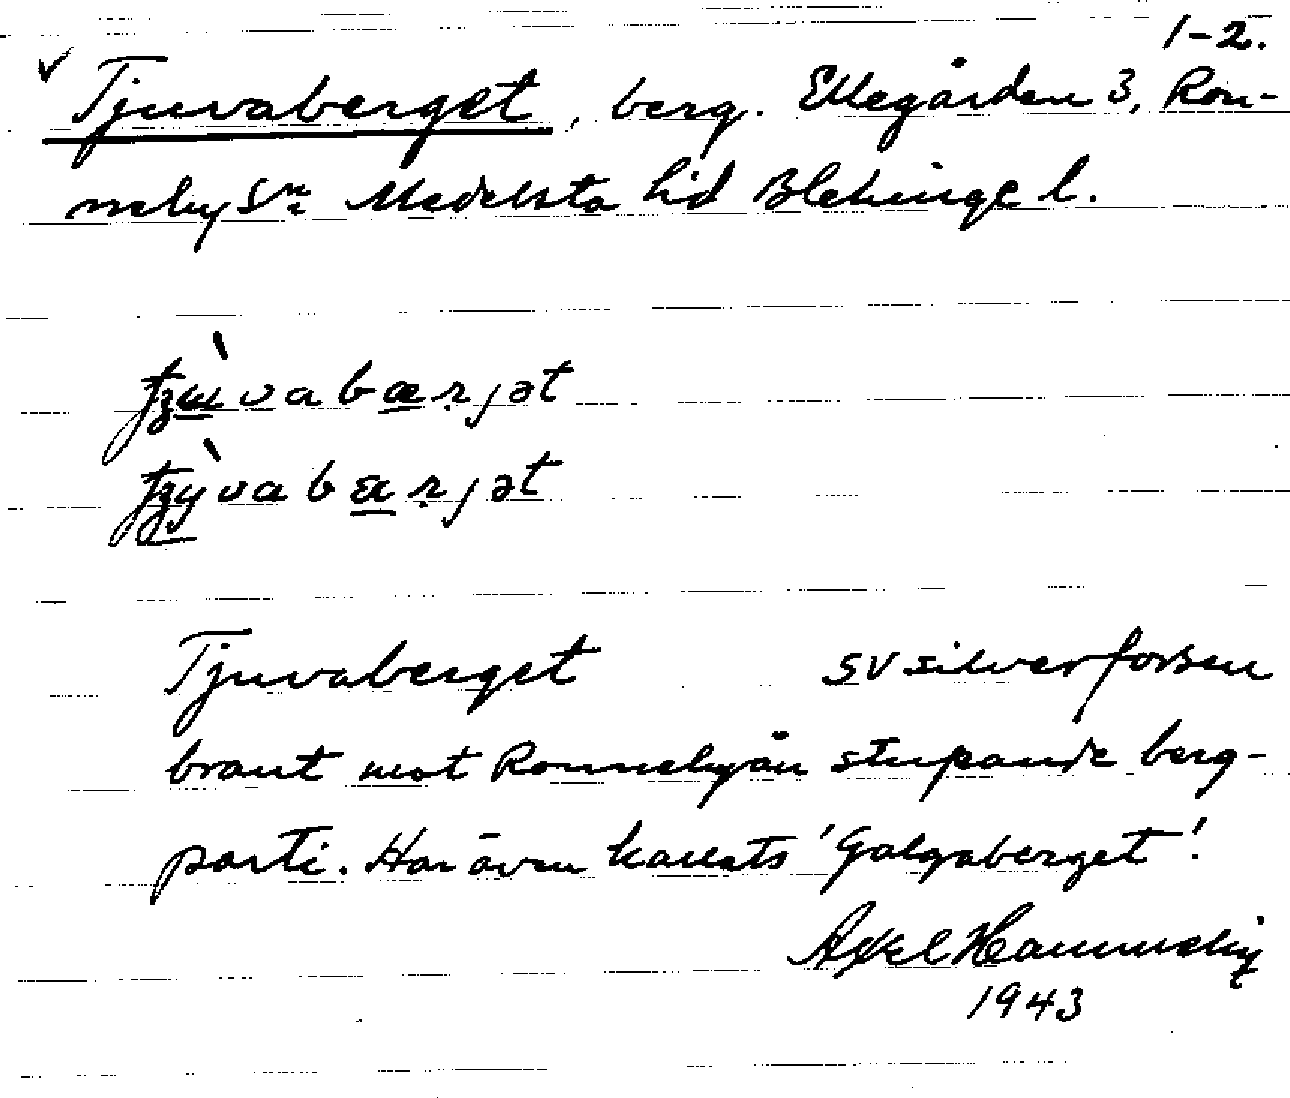 1-2.
√ Tjuvaberget, berg. Ellegården 3, Ron-
neby sn Medelsta hd Blekinge l.
Tjuvaberget SV Silverforsen
brant mot Ronnebyån stupande berg-
parti. Har även kallats 'Galgaberget'.
Axel Hamneby
1943